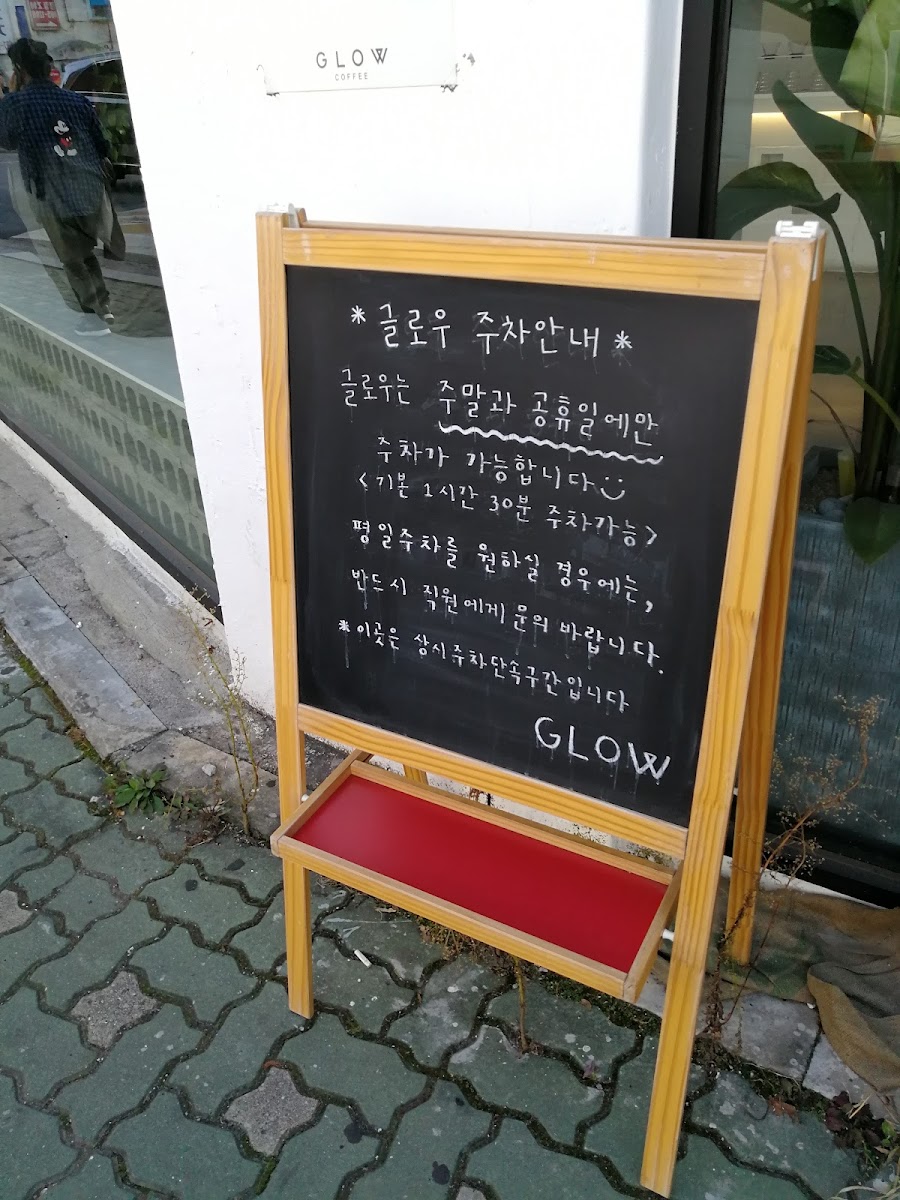 GLOW
COFFEE
* 글로우 주차안내 *
글로우는 주말과 공휴일에만
주차가 가능합니다
<기본 1시간 30분 주차가능>
평일주차를 원하실 경우에는,
반드시 직원에게 문의 바랍니다.
*이곳은 상시주차단속구간입니다
GLOW